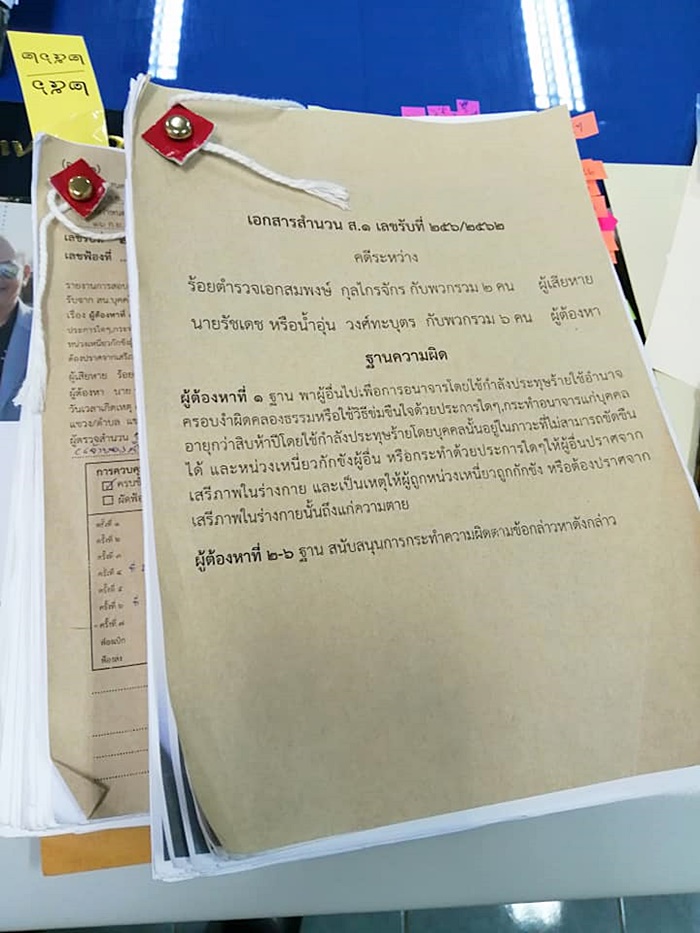 ๒๕๖๒
เอกสารสำนวน ส.๑ เลขรับที่ ๒๕๖/๒๕๖๒
คดีระหว่าง
ร้อยตำรวจเอกสมพงษ์ กุลไกรจักร กับพวกรวม ๒ คน ผู้เสียหาย
นายรัชเดช หรือน้ำอุ่น วงศ์ทะบุตร กับพวกรวม ๖ คน ผู้ต้องหา
ฐานความผิด
ผู้ต้องหาที่ ๑ ฐาน พาผู้อื่นไปเพื่อการอนาจารโดยใช้กำลังประทุษร้ายใช้อำนาจ
ครอบงำผิดคลองธรรมหรือใช้วิธีข่มขืนใจด้วยประการใดๆ,กระทำอนาจารแก่บุคคล
อายุกว่าสิบห้าปีโดยใช้กำลังประทุษร้ายโดยบุคคลนั้นอยู่ในภาวะที่ไม่สามารถขัดขืน
ได้ และหน่วงเหนี่ยวกักขังผู้อื่น หรือกระทำด้วยประการใดๆให้ผู้อื่นปราศจาก
เสรีภาพในร่างกาย และเป็นเหตุให้ผู้ถูกหน่วงเหนี่ยวถูกกักขัง หรือต้องปราศจาก
เสรีภาพในร่างกายนั้นถึงแก่ความตาย
ผู้ต้องหาที่ ๒-๖ ฐาน สนับสนุนการกระทำความผิดตามข้อกล่าวหาดังกล่าว
เลขรับที่
เลขฟ้องที่
รายงานการสอบ
รับจาก สน.บุคค
เรื่อง ผู้ต้องหาที่
ประการใดๆ,กระ
หน่วงเหนี่ยวกักขังผู้
ต้องปราศจากเสรีภ
ผู้เสียหาย ร้อย
ผู้ต้องหา นาย
วันเวลาเกิดเหตุ
แขวง/ตำบล แข
ผู้ตรวจสำนวน
การควบคุ
ครบข
ผัดฟ้อ
ครั้งที่ ๑
ครั้งที่ ๒
ครั้งที่ ๓
ครั้งที่ ๔
ครั้งที่ ๕
ครั้งที่ ๖
ครั้งที่ ๗
ฟ้องลง